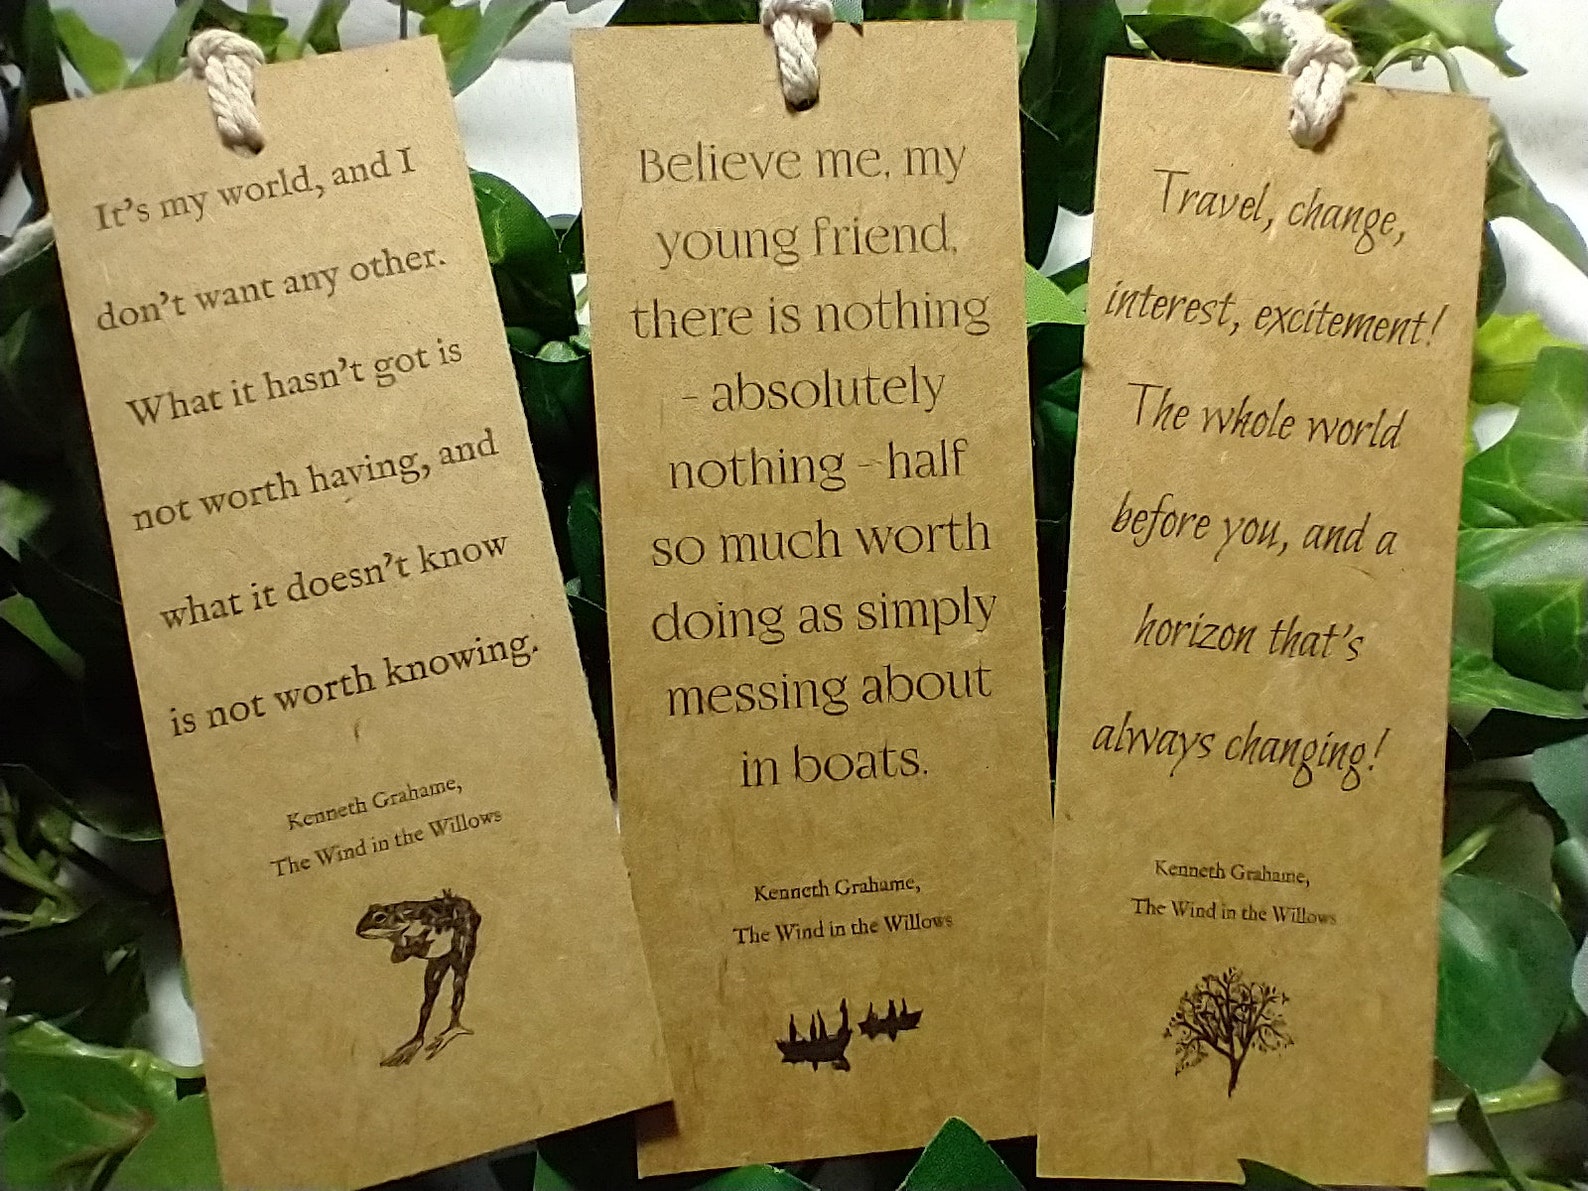 It's my world, and I
don't want any other.
What it hasn't got is
not worth having, and
what it doesn't know
is not worth knowing.
Kenneth Grahame,
The Wind in the Willows
Believe me, my
young friend,
there is nothing
- absolutely
nothing - half
so much worth
doing as simply
messing about
in boats.
Kenneth Grahame,
The Wind in the Willows
Travel, change,
interest, excitement!
The whole world
before you, and a
horizon that's
always changing!
Kenneth Grahame,
The Wind in the Willows